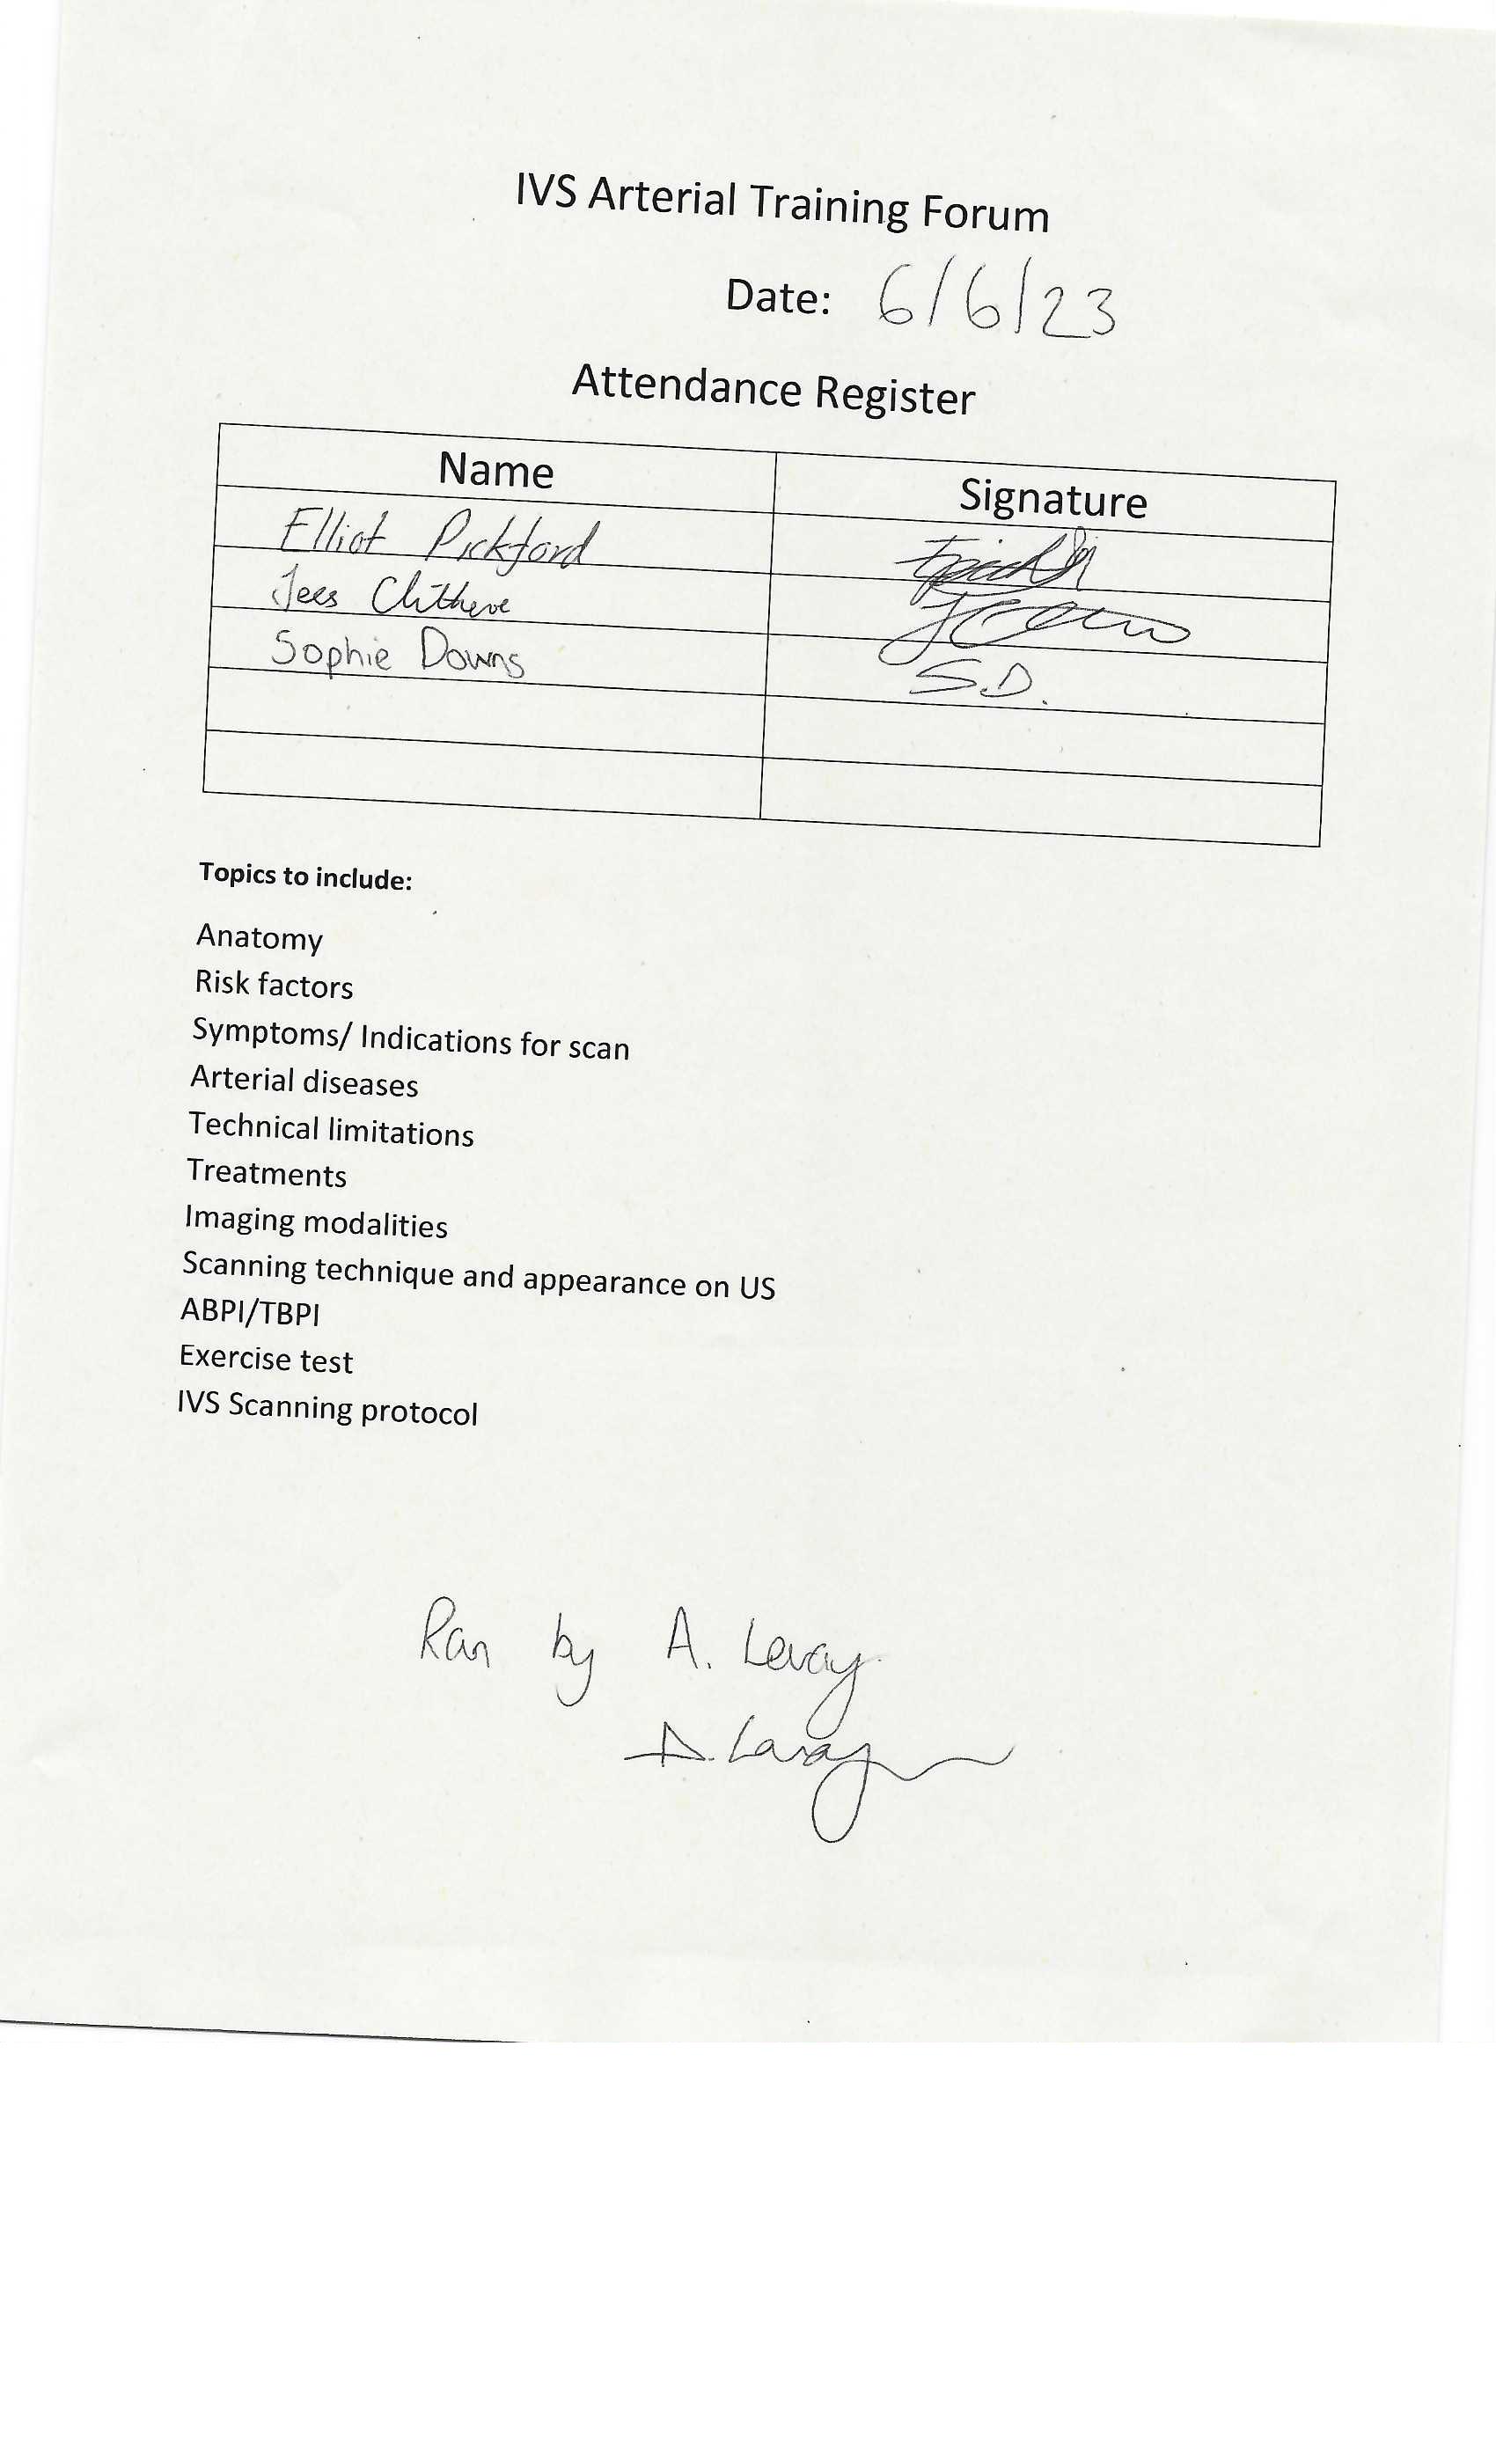 IVS Arterial Training Forum
Date: 6/6/23
Attendance Register
Name Signature
Elliot Pickford
Jess Clitheroe
Sophie Downs S.D.
Topics to include:
Anatomy
Risk factors
Symptoms/ Indications for scan
Arterial diseases
Technical limitations
Treatments
Imaging modalities
Scanning technique and appearance on US
ABPI/TBPI
Exercise test
IVS Scanning protocol
Ran by A. Levay
A. Levay